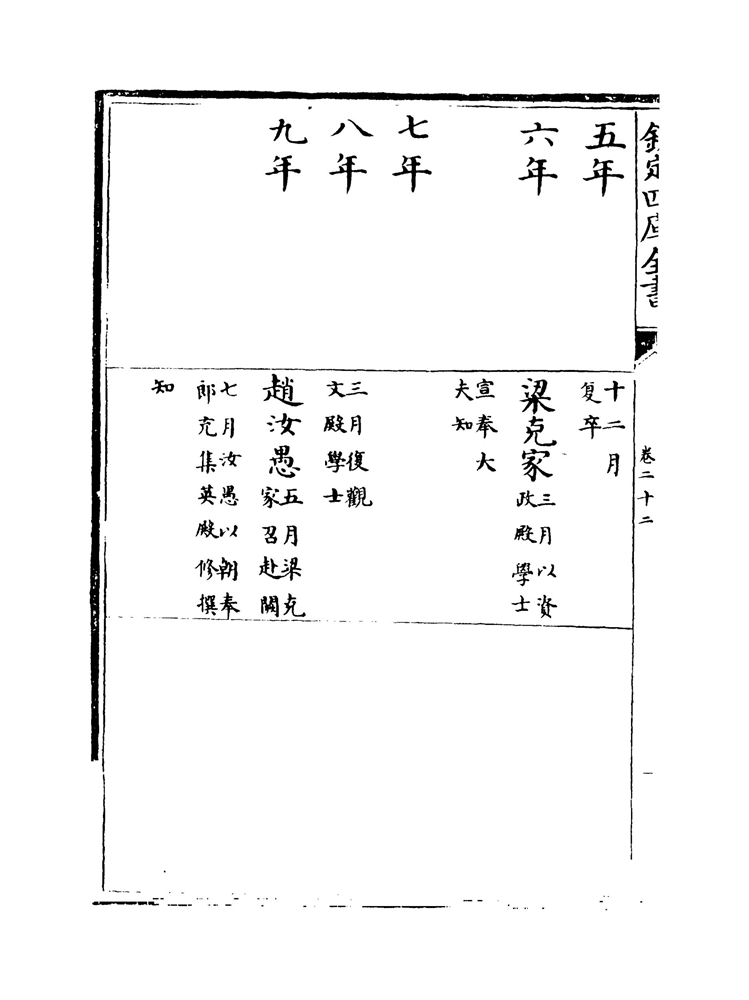 欽定四庫全書
卷二十二
五年
十二月
复卒
六年
梁克家
三月以資
政殿學士
宣奉大
夫知
七年
八年
三月復觀
文殿學士
九年
趙汝愚
五月梁克
家召赴闕
七月汝愚以朝奉
郎充集英殿修撰
知